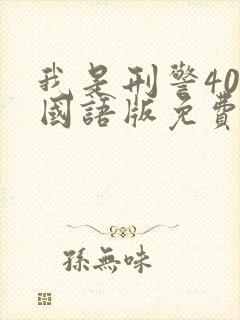 我是刑警40
國語版免費
孫無味